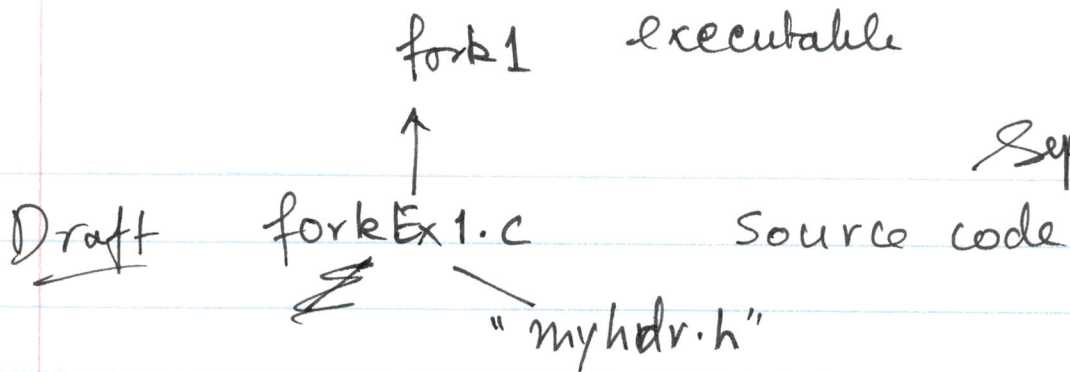 fork1 executable
Draft forkEx1.c Source code
"myhdr.h"